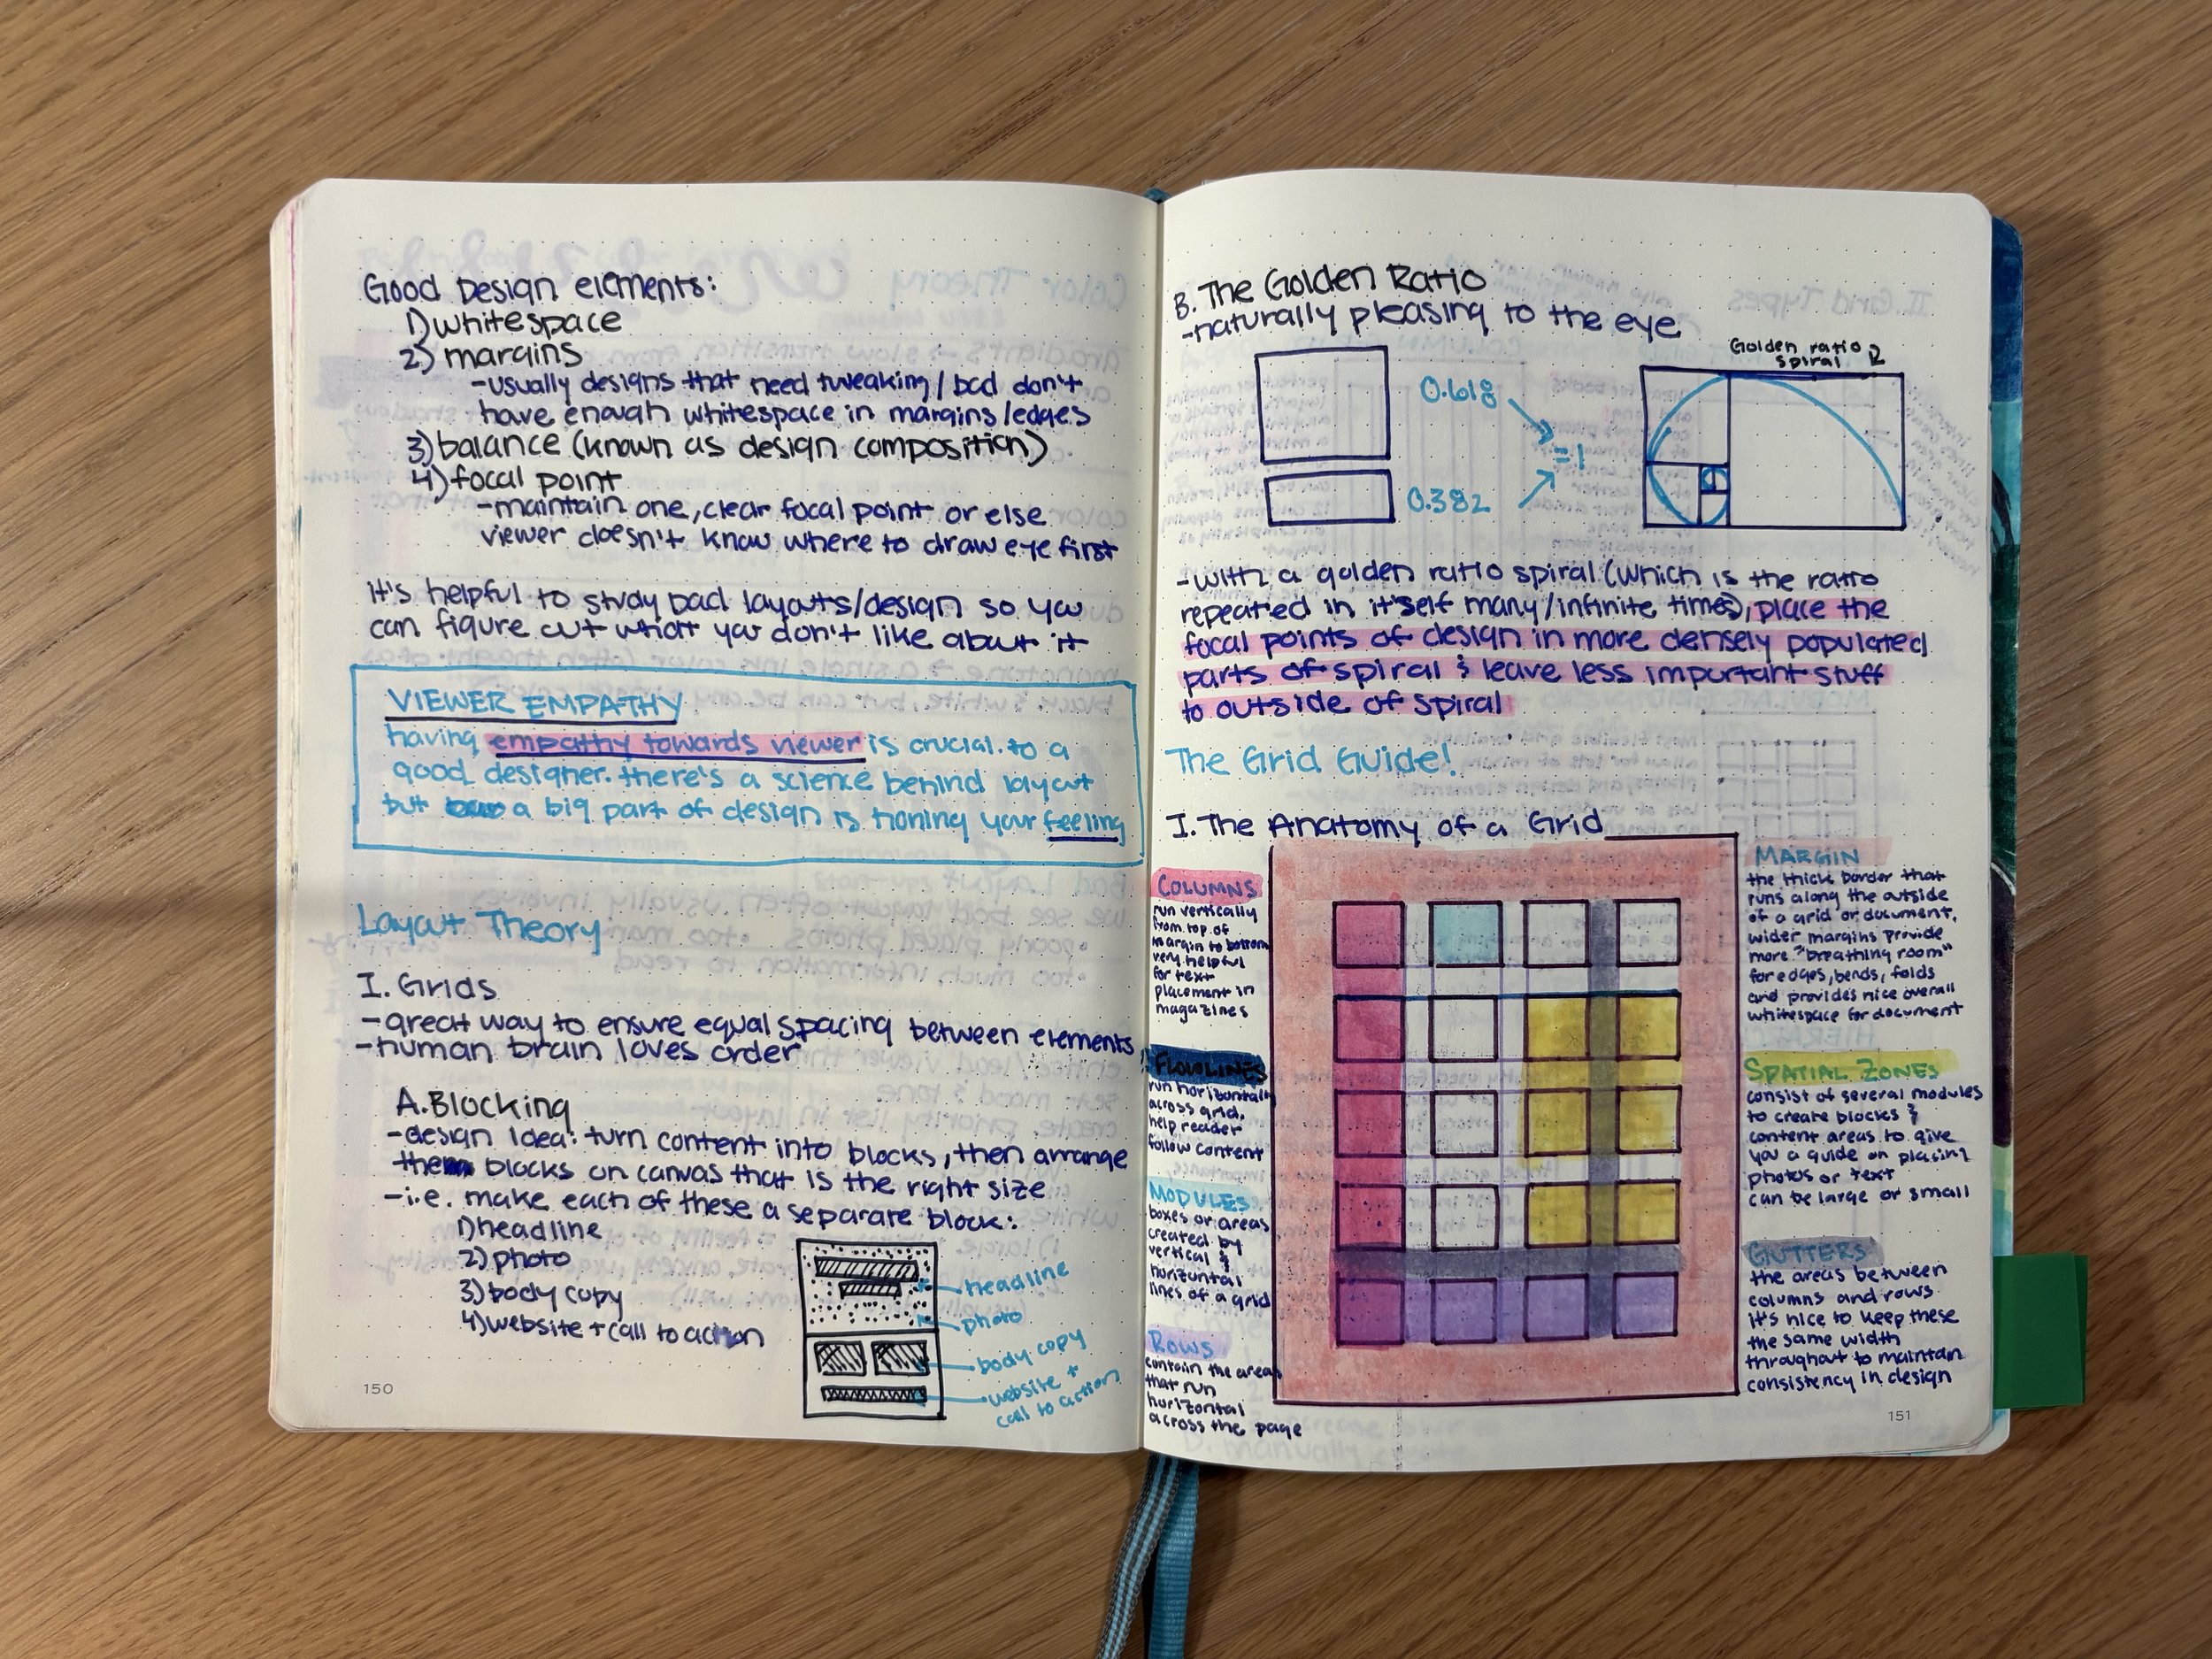 Good Design elements:
1) whitespace
2) margins
-usually designs that need tweaking/bad don't
have enough whitespace in margins/edges
3) balance (known as design composition)
4) focal point
-maintain one, clear focal point or else
viewer doesn't know where to draw eye first
it's helpful to study bad layouts/design so you
can figure out what you don't like about it
VIEWER EMPATHY
having empathy towards viewer is crucial to a
good designer. there's a science behind layout
but a big part of design is honing your feeling
Layout Theory
I. Grids
-great way to ensure equal spacing between elements
-human brain loves order
A. Blocking
-design idea: turn content into blocks, then arrange
them blocks on canvas that is the right size
-i.e. make each of these a separate block:
1) headline
2) photo
3) body copy
4) website + call to action
headline
photo
body copy
website +
call to action
150
B. The Golden Ratio
-naturally pleasing to the eye
0.618
=1
0.382
Golden ratio
spiral
-with a golden ratio spiral (which is the ratio
repeated in it'self many/infinite times), place the
focal points of design in more densely populated
parts of spiral & leave less important stuff
to outside of spiral
The Grid Guide!
I. The Anatomy of a Grid
COLUMNS
run vertically
from top of
margin to bottom
very helpful
for text
placement in
magazines
FLOWLINES
run horizontal
across grid.
help reader
follow content
MODULES
boxes or areas
created by
vertical &
horizontal
lines of a grid
ROWS
contain the areas
that run
horizontal
across the page
MARGIN
the thick border that
runs along the outside
of a grid or document.
wider margins provide
more "breathing room"
for edges, bends, folds
and provides nice overall
whitespace for document
SPATIAL ZONES
consist of several modules
to create blocks &
content areas to give
you a guide on placing
photos or text
can be large or small
GUTTERS
the areas between
columns and rows
it's nice to keep these
the same width
throughout to maintain
consistency in design
151